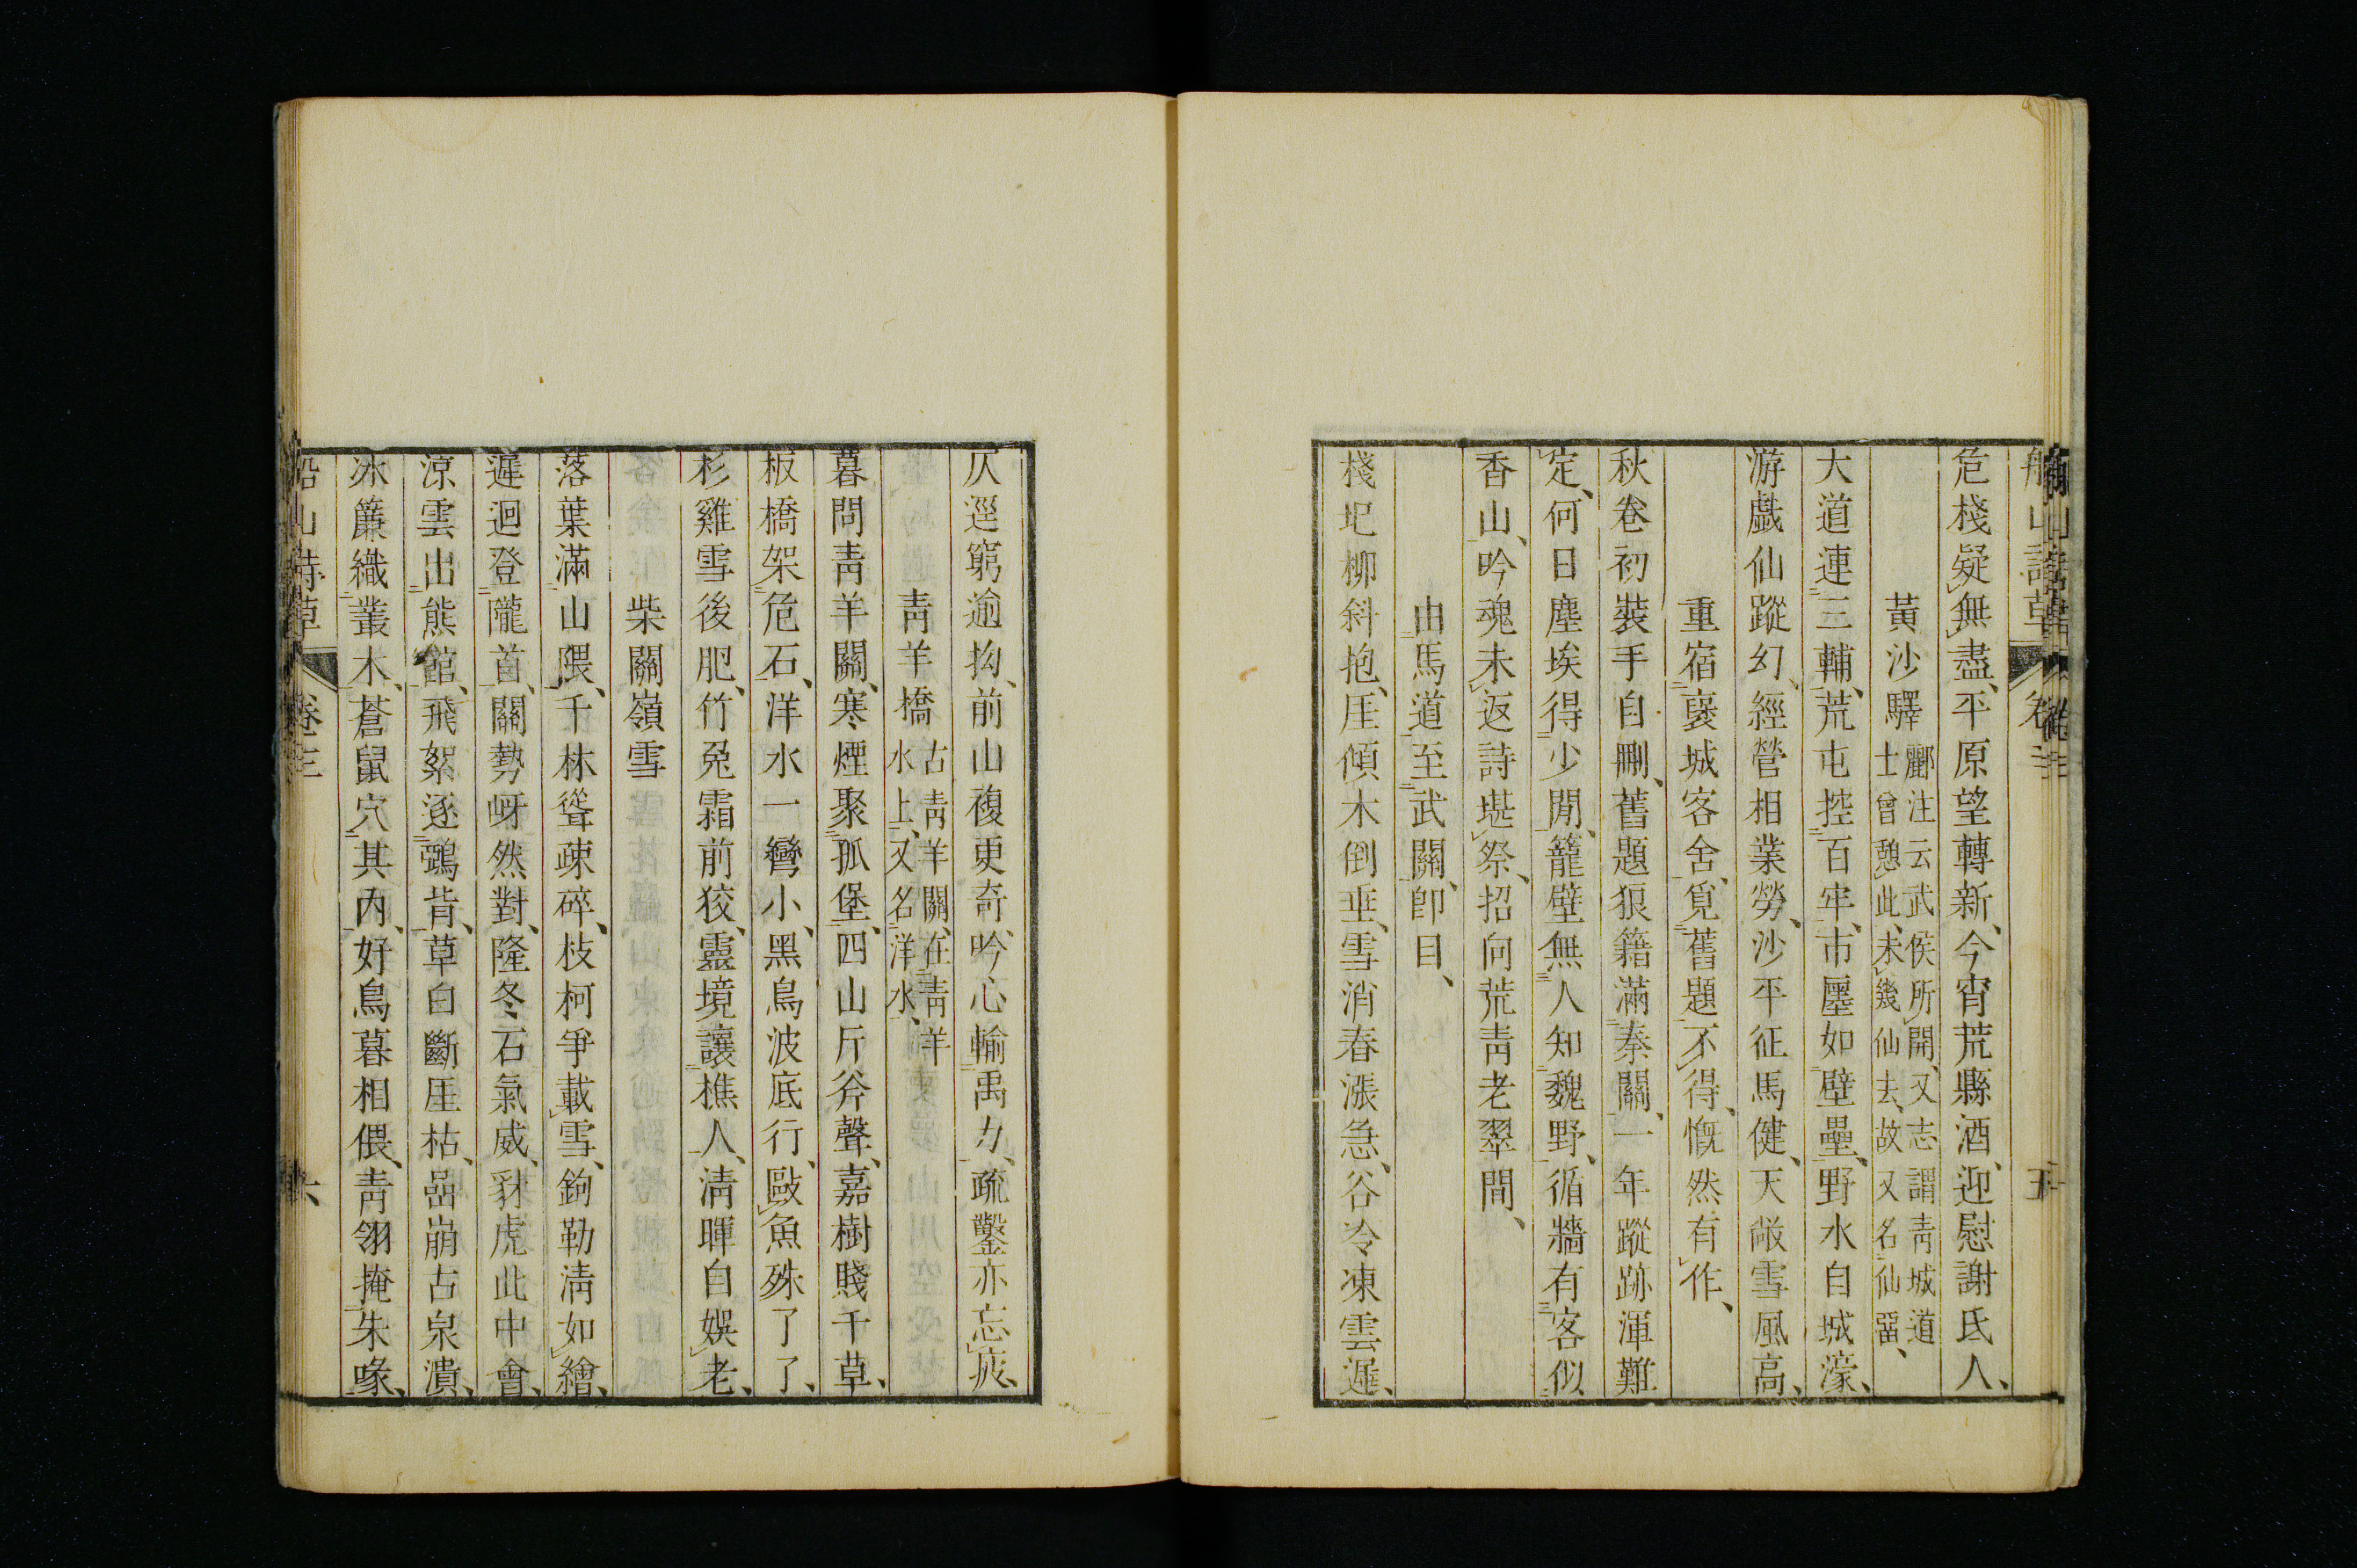 船山詩草 卷三 五
危棧疑無盡、平原望轉新、今宵荒縣酒、迎慰謝氐人、
黃沙驛 酈注云武侯所開、又志謂靑城道
士曾憩此、未幾仙去、故又名仙畱、
大道連三輔、荒屯控百牢、市廛如壁壘、野水自城濠、
游戲仙蹤幻、經營相業勞、沙平征馬健、天敞雪風高、
重宿襃城客舍、覓舊題不得、慨然有作、
秋卷初裝手自刪、舊題狼籍滿秦關、一年蹤跡渾難
定、何日塵埃得少閒、籠壁無人知魏野、循牆有客似
香山、吟魂未返詩堪祭、招向荒靑老翠間、
由馬道至武關、卽目、
棧圯柳斜抱、厓傾木倒垂、雪消春漲急、谷冷凍雲遲、
仄逕窮逾拗、前山複更奇、吟心輸禹力、疏鑿亦忘疲、
靑羊橋 古靑羊關、在靑羊
水上、又名洋水、
暮問靑羊關、寒煙聚孤堡、四山斤斧聲、嘉樹賤千草、
板橋架危石、洋水一彎小、黑鳥波底行、毆魚殊了了、
杉雞雪後肥、竹兔霜前狡、靈境讓樵人、淸暉自娛老、
柴關嶺雪
落葉滿山隈、千林聳疎碎、枝柯爭載雪、鉤勒淸如繪、
遲迴登隴首、關勢呀然對、隆冬石氣威、豺虎此中會、
涼雲出熊館、飛絮逐鵶背、草白斷厓枯、嵒崩古泉潰、
冰簾織叢木、蒼鼠穴其內、好鳥暮相偎、靑翎掩朱喙、
船山詩草 卷三 六